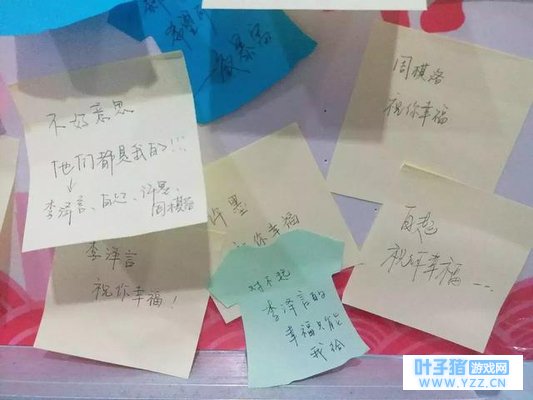 暴富
不好意思
他们都是我的!!!
李泽言、白起、许墨、
周棋洛
周棋洛
祝你幸福
许墨
祝你幸福
白起
祝你幸福...
李泽言
祝你幸福!
对不起
李泽言的
幸福只能
我给
叶子猪 游戏网
WWW.YZZ.CN